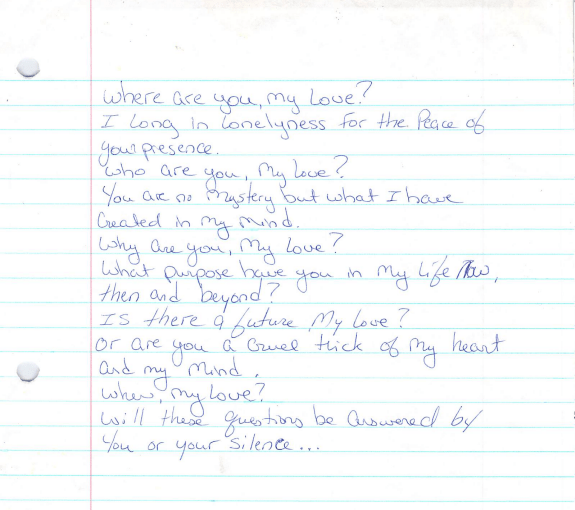 Where are you, my Love?
I Long in Lonelyness for the Peace of
your presence.
Who are you, My Love?
You are no Mystery but what I have
Created in my Mind.
Why are you, My Love?
What purpose have you in My Life Now,
then and beyond?
Is there a future My Love?
Or are you a Cruel trick of My heart
and my Mind.
When, my Love?
Will these questions be answered by
You or your Silence...